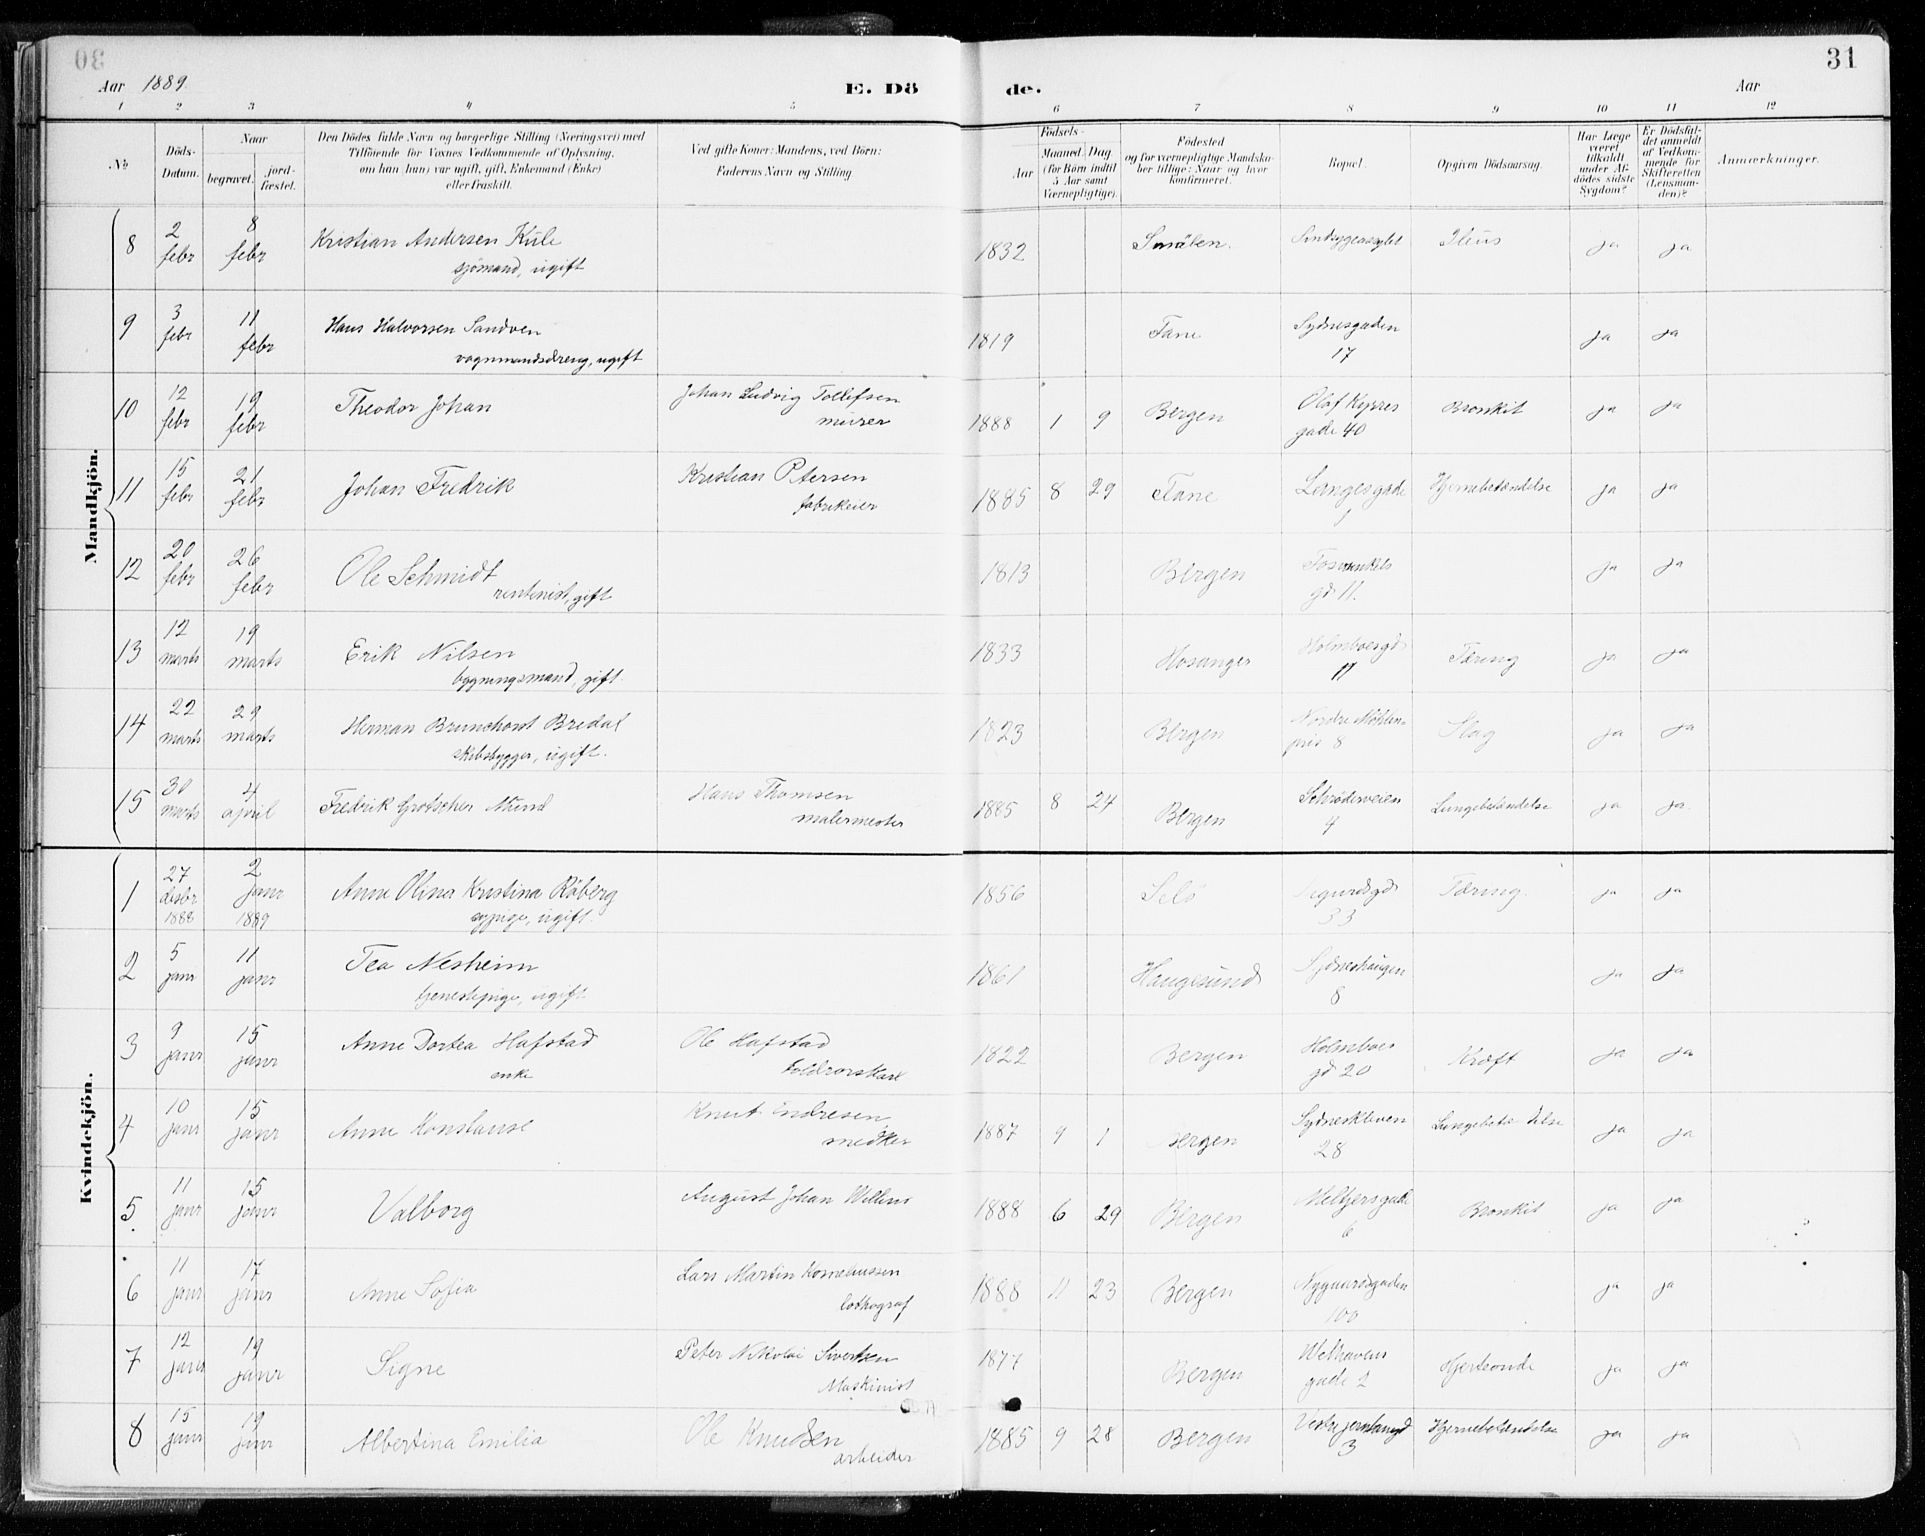 30
31
Aar 1889.
E. Döde.
Aar
1 2 3 4 5 6 7 8 9 10 11 12
No.
Döds-Datum.
Naar
begravet.
jord-fæstet.
Den Dödes fulde Navn og borgerlige Stilling (Næringsvei) med
Tilföiende for Voxnes Vedkommende af Oplysning,
om han (hun) var ugift, gift, Enkemand (Enke)
eller fraskilt.
Ved gifte Koner: Mandens, ved Börn:
Faderens Navn og Stilling.
Födsels-
Aar
Maaned. Dag
(for Börn indtil
5 Aar samt
Værnepligtige).
Födested
og for værnepligtige Mandska-
ber tillige: Naar og hvor
konfirmeret.
Bopæl.
Opgiven Dödsaarsag.
Har Læge
været
tilkaldt
under Af-
dödes sidste
Sygdom?
Er Dödsfal-
det anmeldt
af Vedkom-
mende for
Skifteretten
(Lensman-
den)?
Anmærkninger.
Mandkjön.
8 2 febr 8 febr Kristian Andersen Kule 1832 Småben Sindsygeasylet Ileus ja ja
sjömand, ugift
9 3 febr 11 febr Hans Halvorsen Sandven 1819 Fane Sydnesgaden 17 ja ja
vognmandsdreng, ugift
10 12 febr 19 febr Theodor Johan Johan Ludvig Tollefsen 1888 1 9 Bergen Olaf Kyrres gade 40 Bronkit ja ja
murer
11 15 febr 21 febr Johan Fredrik Kristian Petersen 1885 8 29 Fane Langesgade Hjernebetændelse ja ja
fabrikeier
12 20 febr 26 febr Ole Schmidt 1813 Bergen gd 11. ja ja
rentenist, gift
13 12 marts 19 marts Erik Nilsen 1833 Hosanger Holmboesgd 17 Tæring ja ja
bygningsmand, gift
14 22 marts 29 marts Herman Brunchorst Bredal 1823 Bergen Nordre Möhlenpris 8 Slag ja ja
skibsbygger, ugift.
15 30 marts 4 april Fredrik Grotscher Mund Hans Thomsen 1885 8 24 Bergen Schröderveien 4 Lungebetændelse ja ja
malermester
Kvindekjön.
1 27 desbr 1888 2 janr 1889 Anne Olina Kristina Röberg 1856 Selö Sigurdsgd 33 Tæring. ja ja
sypige, ugift.
2 5 janr 11 janr Tea Nesheim 1861 Haugesund Sydneshaugen 8 ja ja
tjenestepige, ugift
3 9 janr 15 janr Anne Dortea Hafstad Ole Hafstad 1822 Bergen Holmboes gd 20 Kræft ja ja
enke toldrorskarl
4 10 janr 15 janr Anne Konstanse Knut Endresen 1887 9 1 Bergen Sydneskleven 28 ja ja
snedker
5 11 janr 15 janr Valborg August Johan 1888 6 29 Bergen Meltzersgade 6 Bronkit ja ja
6 11 janr 17 janr Anne Sofia Lars Martin Korneliussen 1888 11 23 Bergen Nygaardsgaden 100 ja ja
lithograf
7 12 janr 19 janr Signe Peter Nikolai Sivertsen 1877 Bergen Welhavens gade 2 Hjerteonde ja ja
Maskinist
8 15 janr 19 janr Albertina Emilia Ole Knudsen 1885 9 28 Bergen 3 Hjernebetændelse ja ja
arbeider